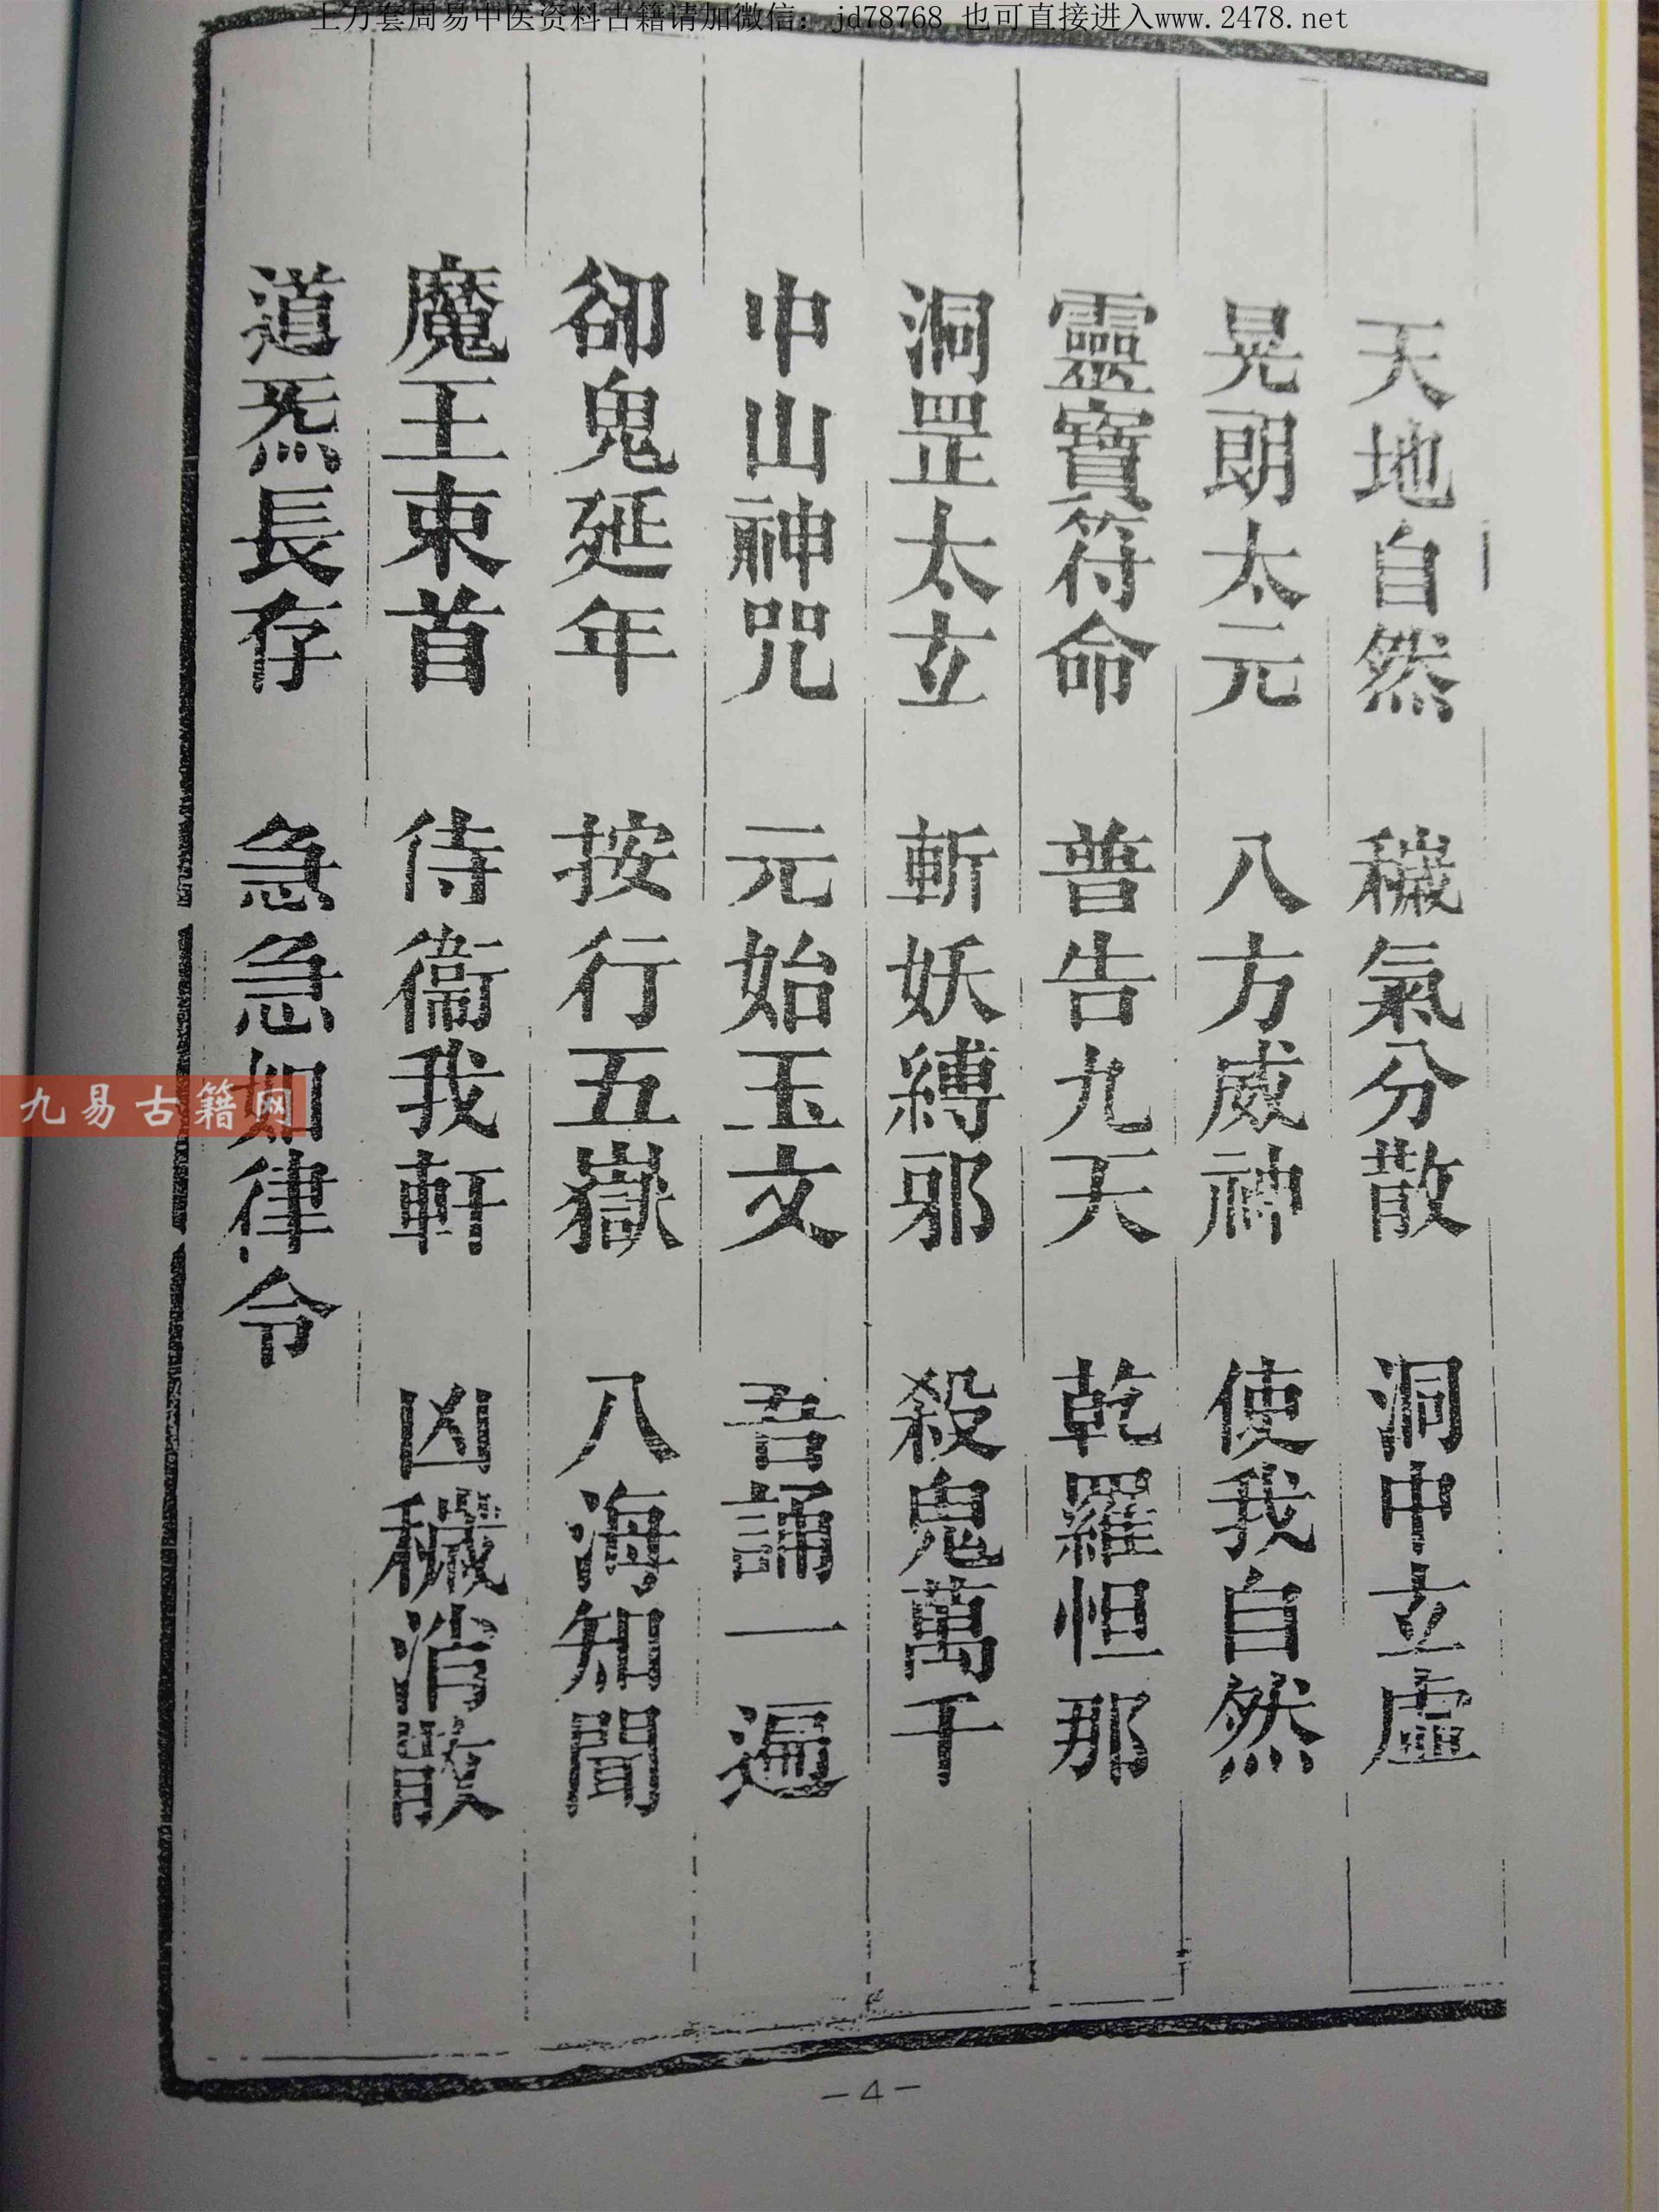 上万套周易中医资料古籍请加微信：jd78768 也可直接进入www.2478.net
天地自然 穢氣分散 洞中立虛
晃朗太元 八方威神 使我自然
靈寶符命 普告九天 乾羅怛那
洞罡太立 斬妖縛邪 殺鬼萬千
中山神咒 元始玉文 吾誦一遍
卻鬼延年 按行五嶽 八海知聞
魔王束首 待衞我軒 凶穢消散
道炁長存 急急如律令
九易古籍网
-4-